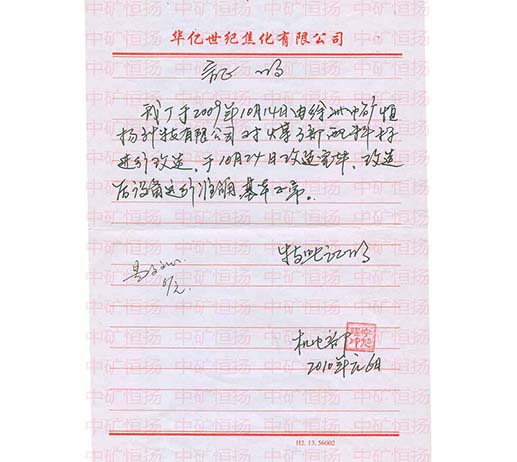 华亿世纪焦化有限公司
证明
我厂于2009年10月14日由徐州中矿恒
扬科技有限公司对新配料秤
进行改造，于10月24日改造完毕、改造
后设备运行准确基本正常。
特此证明
6/元.
机电部
2010年元6日
H2. 13. 56002
中矿恒扬